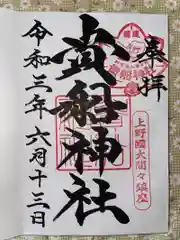 奉拝
上野國大間々鎮座
貴船神社
令和三年六月十三日